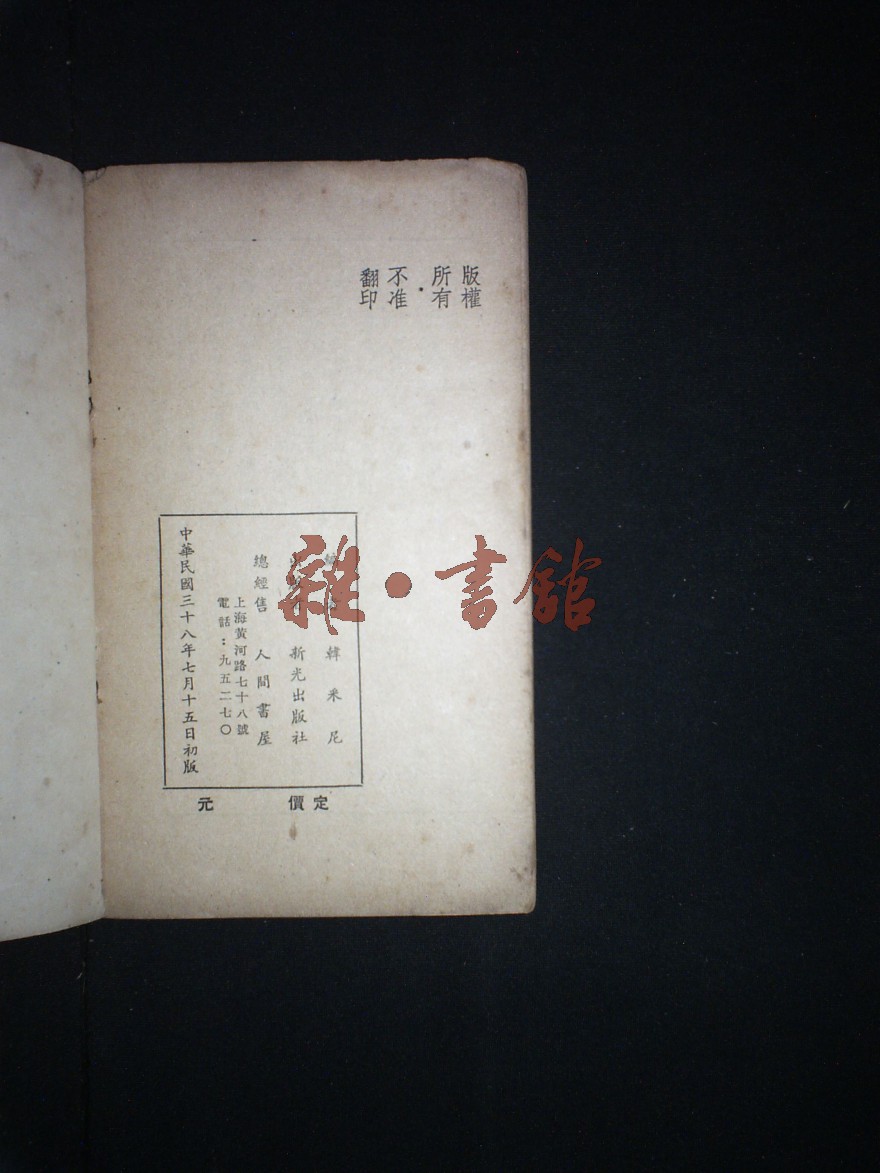 版權
所有・
不准
翻印
韓釆尼
出版者 新光出版社
總經售 人間書屋
上海黃河路七十八號
電話：九五二七〇
中華民國三十八年七月十五日初版
定價 元
雜・書館